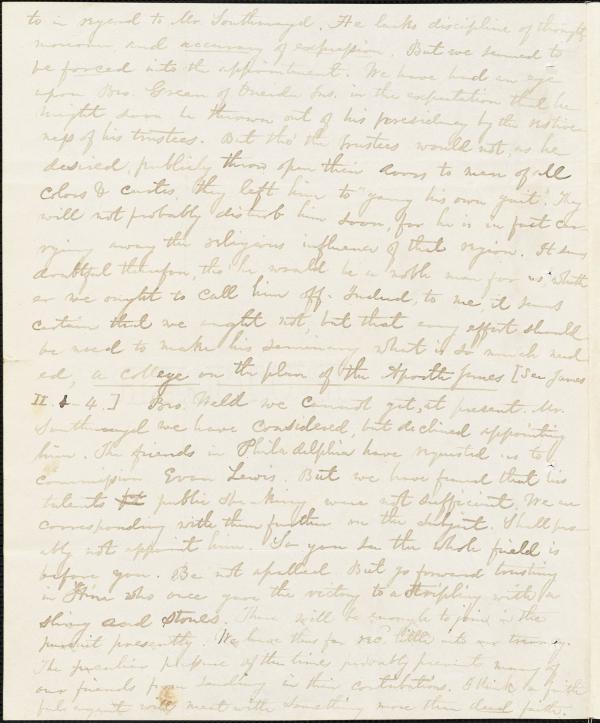 to in regard to Mr Southmayd. He lacks discipline of thought,
and accuracy of expression. But we seemed to
be forced into the appointment. We have had an eye
upon Bro. Green of Oneida Ins. in the expectation that he
might soon be thrown out of his presidency by the restive-
ness of his trustees. But tho' the trustees would not, as he
desired, publicly throw open their doors to men of all
colors & castes, they left him to "gang his own gait". They
will not probably disturb him soon, for he is in fact car-
rying away the religious influence of that region. It seems
doubtful therefore, tho' he would be a noble man for us, wheth-
er we ought to call him off. Indeed, to me, it seems
certain that we ought not, but that every effort should
be used to make his seminary what is so much need
ed, a college on the plan of the Apostle James [See James
II. 1-4.] Bro. Weld we cannot get, at present. Mr.
Southmayd we have considered, but declined appointing
him. The friends in Philadelphia have requested us to
commission Evan Lewis. But we have found that his
talents for public speaking were not sufficient. We are
corresponding with them further on the subject. Shall prob-
ably not appoint him. So you see the whole field is
before you. Be not apalled. But go forward trusting
in Him who once gave the victory to a stripling with a
sling and stones. There will be enough to join in the
pursuit presently. We have thus far rec'd little into our treasury.
The peculiar pressure of the times probably prevents many of
our friends from sending in their contributions. I think a faith
ful agent will meet with something more than dead faith.